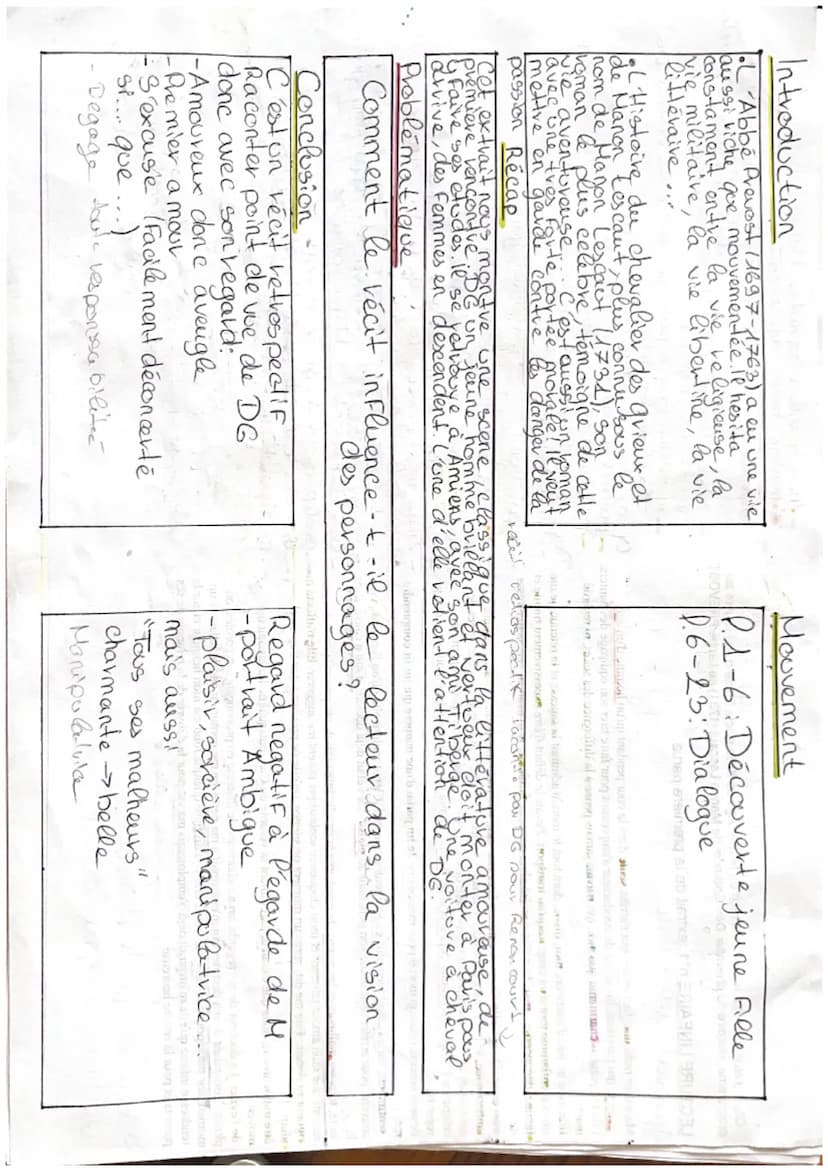 Introduction
•L'Abbé Prevost (1697-1763) a eu une vie
aussi riche que mouvementée. Il hésita
constament entre la vie religieuse, la
vie militaire, la vie libertine, la vie
littéraire...
•L'Histoire du chevalier des grieux et
de Manon Lescaut, plus connu sous le
nom de Manon Lescaut (1731), son
roman le plus célèbre, témoigne de cette
vie aventureuse... C'est aussi un roman
avec une très forte portée morale: il veut
mettre en garde contre les danger de la
passion
Mouvement
P.1-6: Découverte jeune fille
P.6-23: Dialogue
Récap
récit retrospectif raconté par DG pour Renoncourt
Cet extrait nous montre une scène classique dans la littérature amoureuse, de
première rencontre. DG un jeune homme brillant et vertueux doit monter à Paris pour
y faire ses études. il se retrouve à Amiens, avec son ami Tiberge. Une voiture à cheval
arrive, des femmes en descendent l'une d'elle retient l'attention de DG.
Problématique
Comment le récit influence-t-il le lecteur dans la vision
des personnages?
Conclusion
C'est un récit retrospectif
Raconter point de vue de DG
donc avec son regard:
-Amoureux donc aveugle
-Premier amour
-S'excuse (facilement déconcerté
si... que...)
- Dégage toute responsabilité-
Regard negatif à l'egarde de M
-portrait Ambigue
-plaisir, sorcière, manipulatrice...
mais aussi
"Tous ses malheurs"
charmante → belle
Manipulatrice